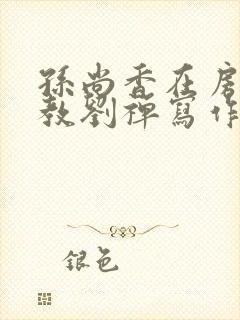 孫尚香在房
教劉禪寫作
銀色